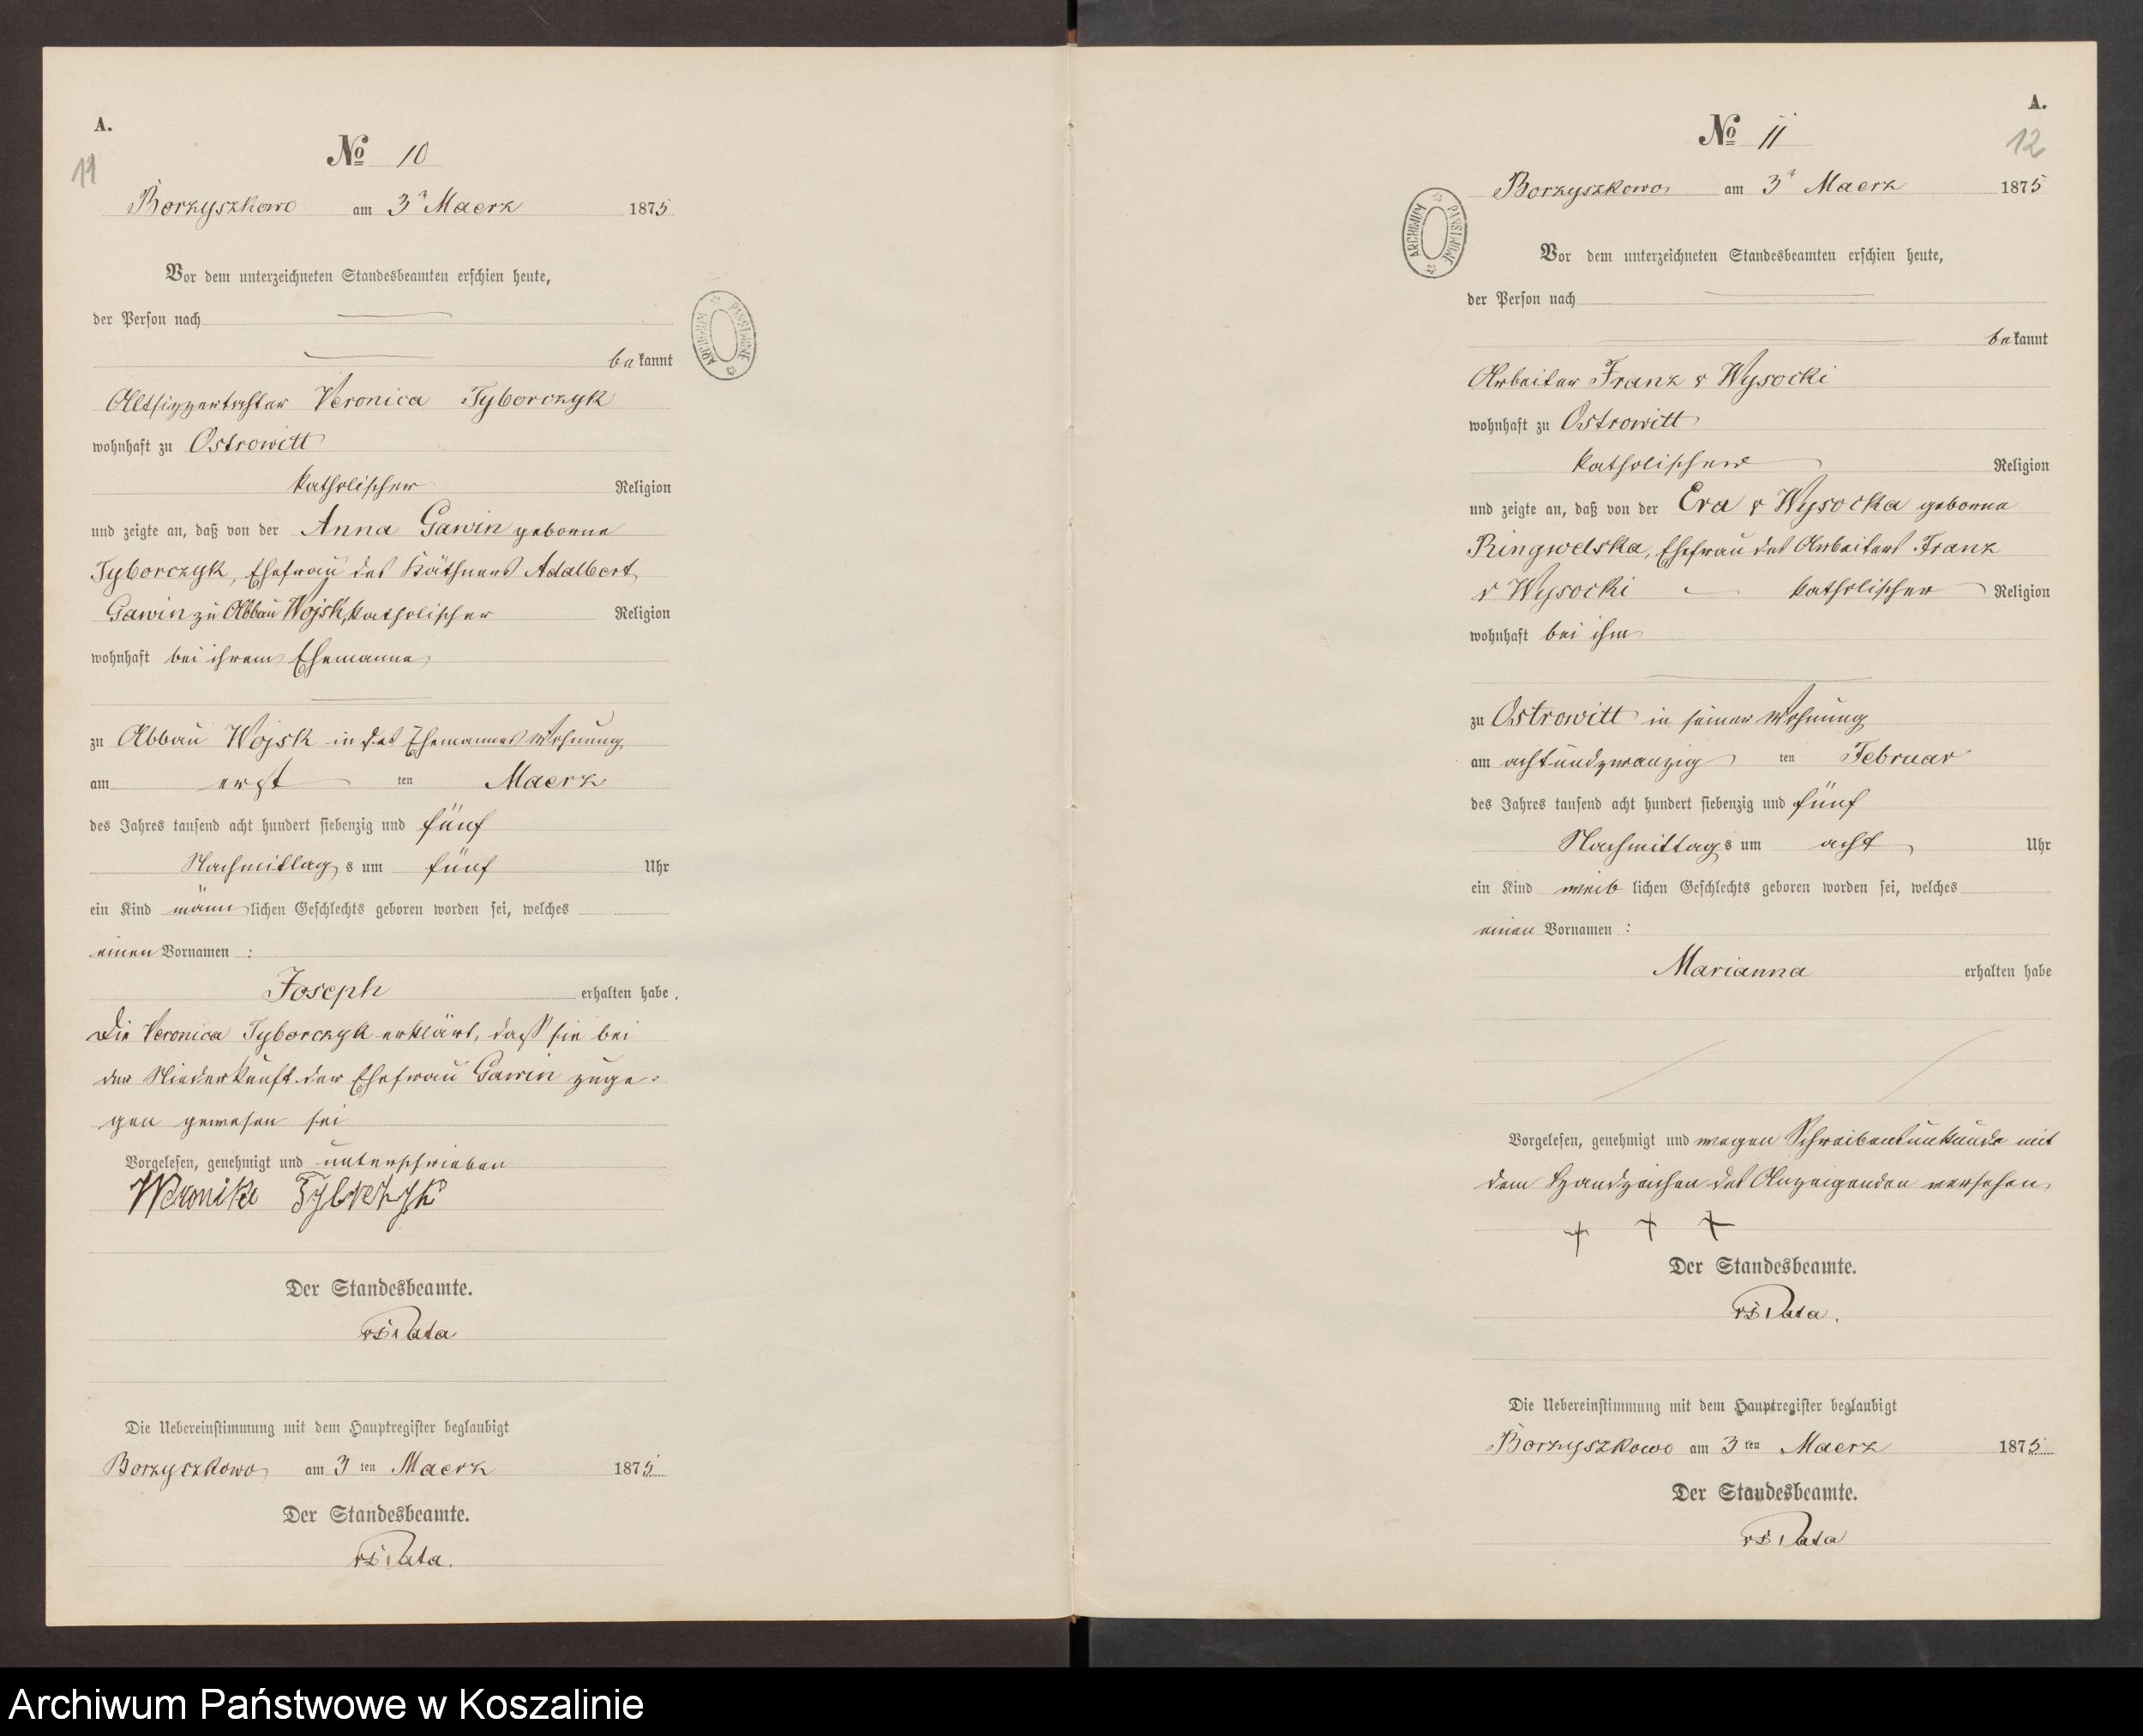 A.
11
№ 10
Borzyszkowo am 3ⁿ Maerz 1875
Vor dem unterzeichneten Standesbeamten erschien heute,
der Person nach
bekannt
Veronica Tyborczyk
wohnhaft zu Ostrowitt
katholischer Religion
und zeigte an, daß von der Anna Gawin geborne
Tyborczyk, Ehefrau des Käthners Adalbert
Gawin zu Abbau Wojsk, katholischer Religion
wohnhaft bei ihrem Ehemanne
zu Abbau Wojsk in des Ehemannes Wohnung
am erst ten Maerz
des Jahres tausend acht hundert siebenzig und fünf
Nachmittags um fünf Uhr
ein Kind männlichen Geschlechts geboren worden sei, welches
einen Vornamen :
Joseph erhalten habe.
Die Veronica Tyborczyk erklärt, daß sie bei
der Niederkunft der Ehefrau Gawin zuge:
gen gewesen sei
Vorgelesen, genehmigt und unterschrieben
Weronika
Der Standesbeamte.
Die Uebereinstimmung mit dem Hauptregister beglaubigt
Borzyszkowo am 3 ten Maerz 1875
Der Standesbeamte.
ARCHIWUM PAŃSTWOWE
A.
12
№ 11
Borzyszkowo am 3ⁿ Maerz 1875
Vor dem unterzeichneten Standesbeamten erschien heute,
der Person nach
bekannt
Arbeiter Franz v Wysocki
wohnhaft zu Ostrowitt
katholischer Religion
und zeigte an, daß von der Eva v Wysocka geborne
Ringwelska, Ehefrau des Arbeiters Franz
v Wysocki katholischer Religion
wohnhaft bei ihm
zu Ostrowitt in seiner Wohnung
am achtundzwanzig ten Februar
des Jahres tausend acht hundert siebenzig und fünf
Nachmittags um acht Uhr
ein Kind weiblichen Geschlechts geboren worden sei, welches
einen Vornamen :
Marianna erhalten habe
Vorgelesen, genehmigt und wegen Schreibensunkunde mit
dem Handzeichen des Anzeigenden versehen
+ + +
Der Standesbeamte.
Die Uebereinstimmung mit dem Hauptregister beglaubigt
Borzyszkowo am 3 ten Maerz 1875
Der Standesbeamte.
ARCHIWUM PAŃSTWOWE
Archiwum Państwowe w Koszalinie